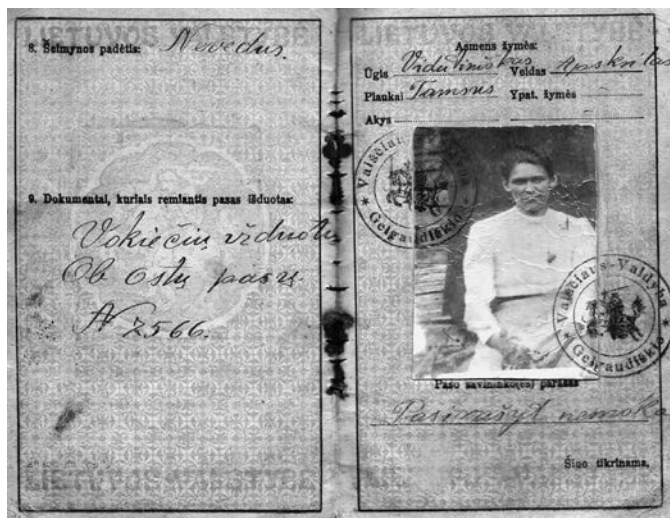 8. Šeimynos padėtis: Nevedus.
9. Dokumentai, kuriais remiantis pasas išduotas:
Vokiečių išduotu
Ob Ostų pasų
N 2566.
Asmens žymės:
Ūgis Vidutiniškas Veidas Apskritas
Plaukai Tamsus Ypat. žymės
Akys
Valsčiaus Valdyba
Gelgaudiškio
Valsčiaus Valdyba
Gelgaudiškio
Paso savininko(ės) parašas
Pasirašyt nemoka
Šiuo tikrinama,